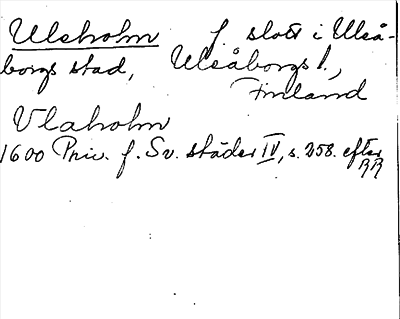 Uleholm f. slott i Uleå-
borgs stad, Uleåborgs l.,
Finland
Vlaholm
1600 Priv. f. Sv. städer IV, s. 258. efter
RR